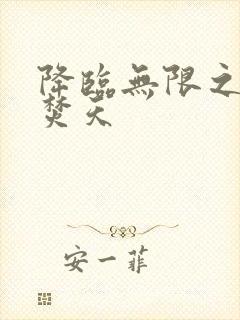 降臨無限之
焚天
安一菲